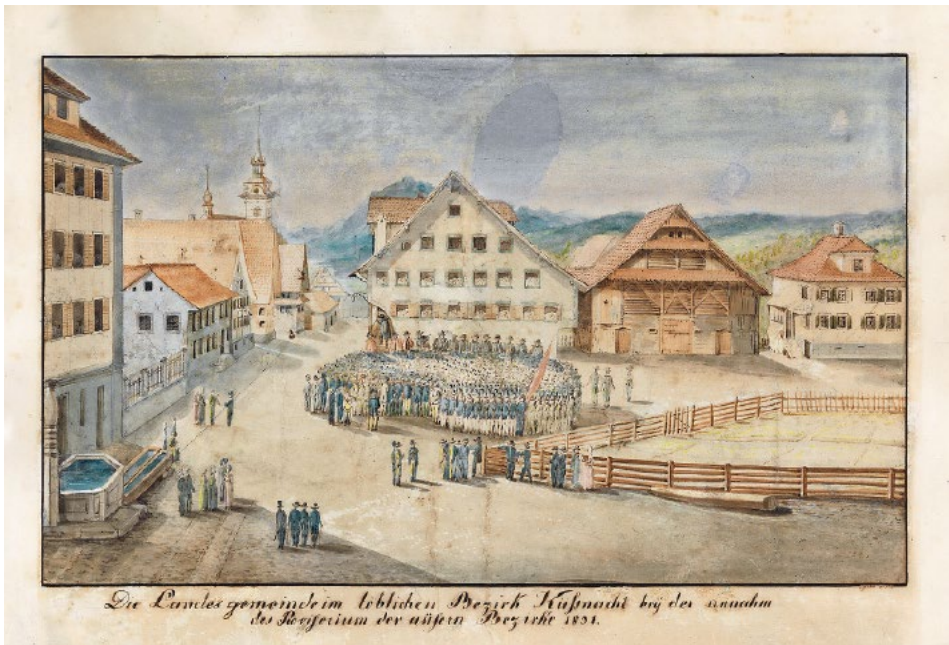 Die Landesgemeinde im löblichen Bezirk Küßnacht bÿ der annahm
des Provisorium der aüsern Bezirke 1831.